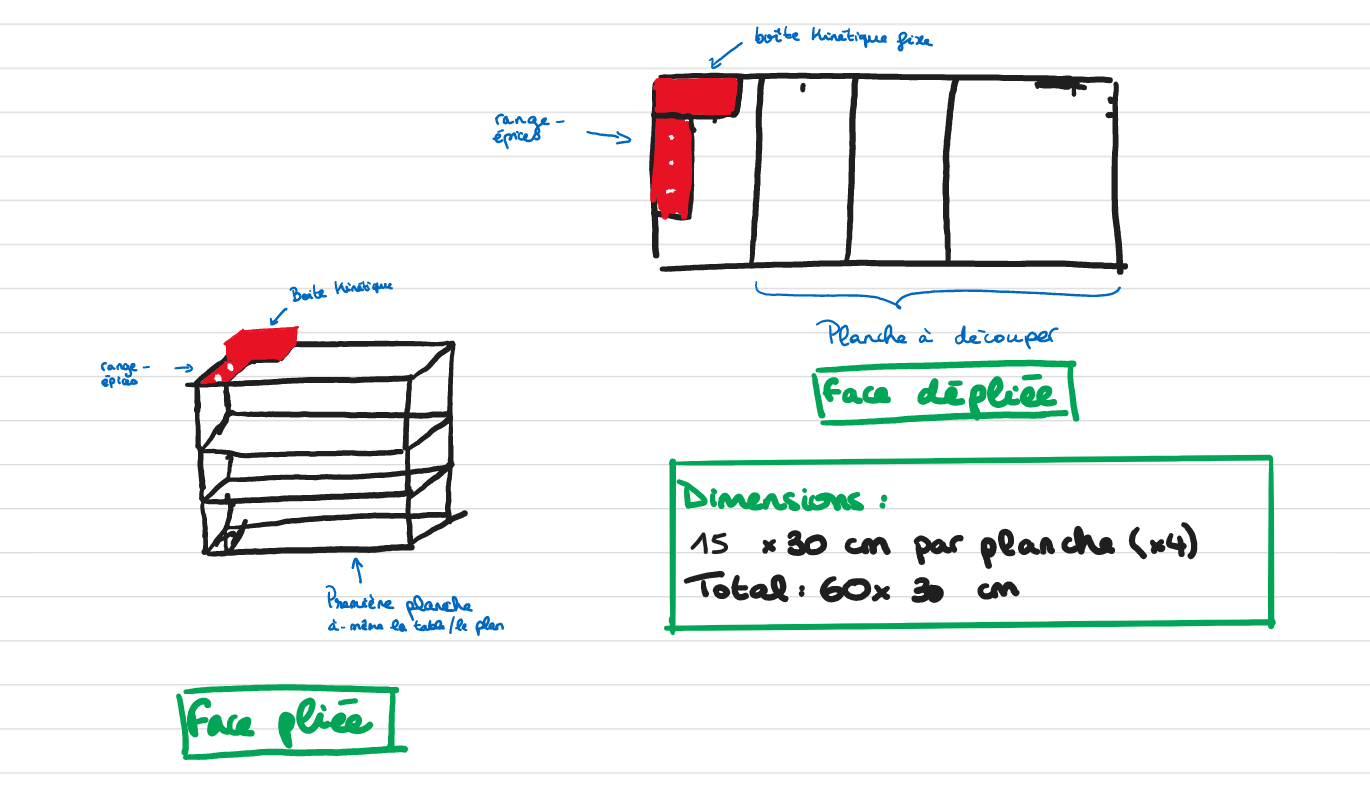 boîte Kinétique fixe
range-
épices
Planche à découper
Face dépliée
Boite Kinétique
range-
épices
Dimensions :
15 x 30 cm par planche (x4)
Total : 60 x 30 cm
Première planche
à-même la table/le plan
Face pliée